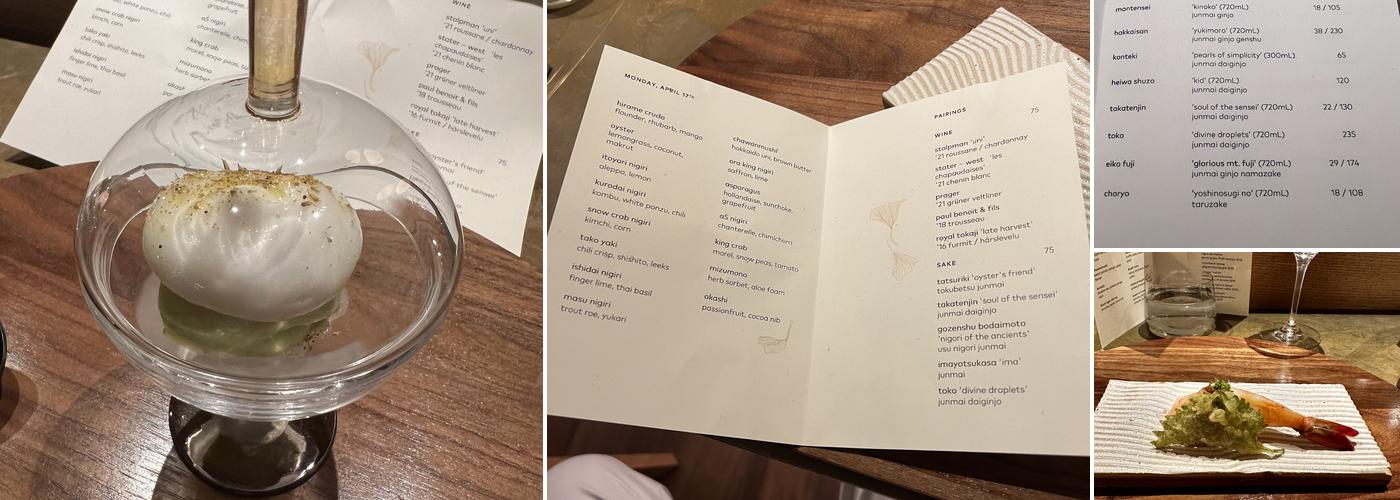 snow crab nigiri
kimchi, corn
tako yaki
chili crisp, shishito, leeks
ishidai nigiri
finger lime, thai basil
masu nigiri
trout roe, yukari
grapefruit
a5 nigiri
king crab
mizumono
WINE
stolpman 'uni'
'21 roussane / chardonnay
stater – west 'les
chapaudaises'
'21 chenin blanc
prager
'21 grüner veltliner
paul benoit & fils
'18 trousseau
royal tokaji 'late harvest'
'16 furmit / hárslevelu
75
MONDAY, APRIL 17TH
hirame crudo
flounder, rhubarb, mango
oyster
lemongrass, coconut,
makrut
itoyori nigiri
aleppo, lemon
kurodai nigiri
kombu, white ponzu, chili
snow crab nigiri
kimchi, corn
tako yaki
chili crisp, shishito, leeks
ishidai nigiri
finger lime, thai basil
masu nigiri
trout roe, yukari
chawanmushi
hokkaido uni, brown butter
ora king nigiri
saffron, lime
asparagus
hollandaise, sunchoke,
grapefruit
a5 nigiri
chanterelle, chimichurri
king crab
morel, snow peas, tomato
mizumono
herb sorbet, aloe foam
okashi
passionfruit, cocoa nib
PAIRINGS
75
WINE
stolpman 'uni'
'21 roussane / chardonnay
stater – west 'les
chapaudaises'
'21 chenin blanc
prager
'21 grüner veltliner
paul benoit & fils
'18 trousseau
royal tokaji 'late harvest'
'16 furmit / hárslevelu
75
SAKE
tatsuriki 'oyster's friend'
tokubetsu junmai
takatenjin 'soul of the sensei'
junmai daiginjo
gozenshu bodaimoto
'nigori of the ancients'
usu nigori junmai
imayotsukasa 'ima'
junmai
toko 'divine droplets'
junmai daiginjo
montensei 'kinoko' (720mL) 18 / 105
junmai ginjo
hakkaisan 'yukimoro' (720mL) 38 / 230
junmai ginjo genshu
konteki 'pearls of simplicity' (300mL) 65
junmai daiginjo
heiwa shuzo 'kid' (720mL) 120
junmai daiginjo
takatenjin 'soul of the sensei' (720mL) 22 / 130
junmai daiginjo
toko 'divine droplets' (720mL) 235
junmai daiginjo
eiko fuji 'glorious mt. fuji' (720mL) 29 / 174
junmai ginjo namazake
choryo 'yoshinosugi no' (720mL) 18 / 108
taruzake